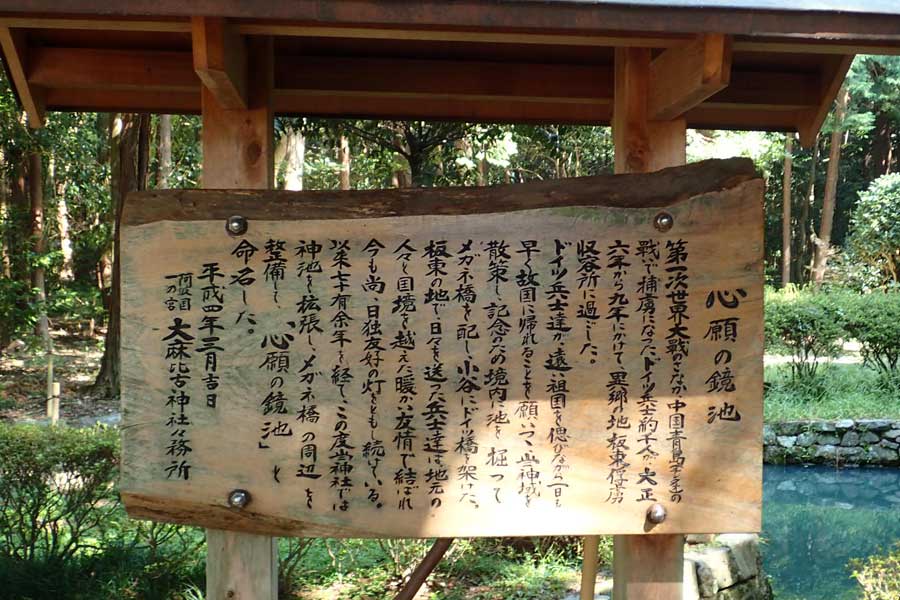 心願の鏡池
第一次世界大戦のさなか中国青島での
戦で捕虜になったドイツ兵士約千人が大正
六年から九年にかけて異郷の地板東俘虜
収容所に過ごした。
ドイツ兵士達が遠い祖国を偲びながら一日も
早く故国に帰れることを願いつつ当神域を
散策し記念のため境内に池を掘って
メガネ橋を配し、小谷にドイツ橋を架けた。
板東の地で日々を送った兵士達は地元の
人々と国境を越えた暖かい友情で結ばれ
今も尚、日独友好の灯をともし続けている。
以来七十有余年を経てこの度当神社では
神池を拡張しメガネ橋の周辺を
整備して「心願の鏡池」と
命名した。
平成四年三月吉日
阿波国一の宮 大麻比古神社公務所